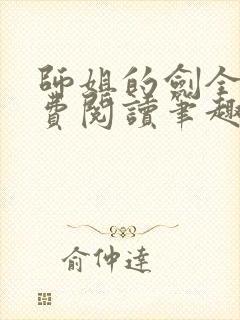 師姐的劍全
費閱讀筆趣
俞仲達